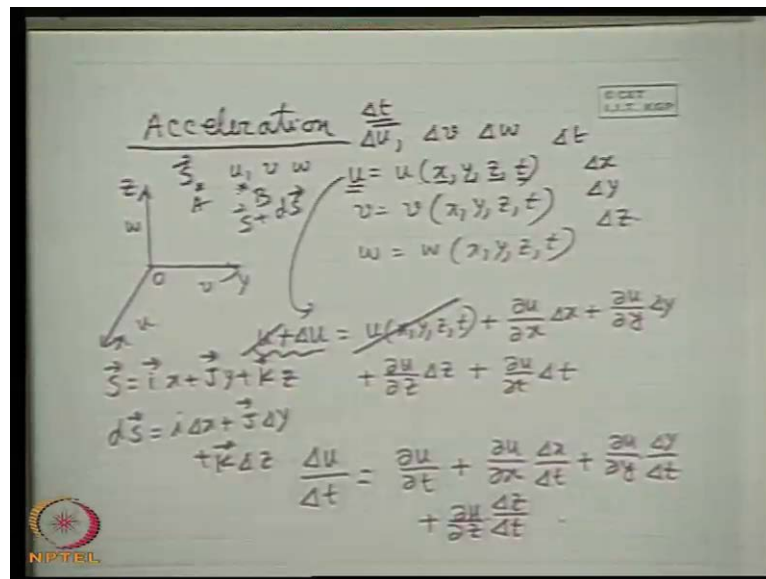 © CET
I.I.T. KGP
Acceleration
Δt
Δu, Δv Δw Δt
S⃗ u, v w
A B
S⃗ + dS⃗
Z
w
O
v y
x u
u = u(x, y, z, t) Δx
v = v(x, y, z, t) Δy
w = w(x, y, z, t) Δz
u+Δu = u(x, y, z, t) + ∂u/∂x Δx + ∂u/∂y Δy
+ ∂u/∂z Δz + ∂u/∂t Δt
S⃗ = i⃗x + J⃗y + k⃗z
dS⃗ = iΔx + J⃗Δy
+ k⃗Δz
Δu/Δt = ∂u/∂t + ∂u/∂x Δx/Δt + ∂u/∂y Δy/Δt
+ ∂u/∂z Δz/Δt
NPTEL